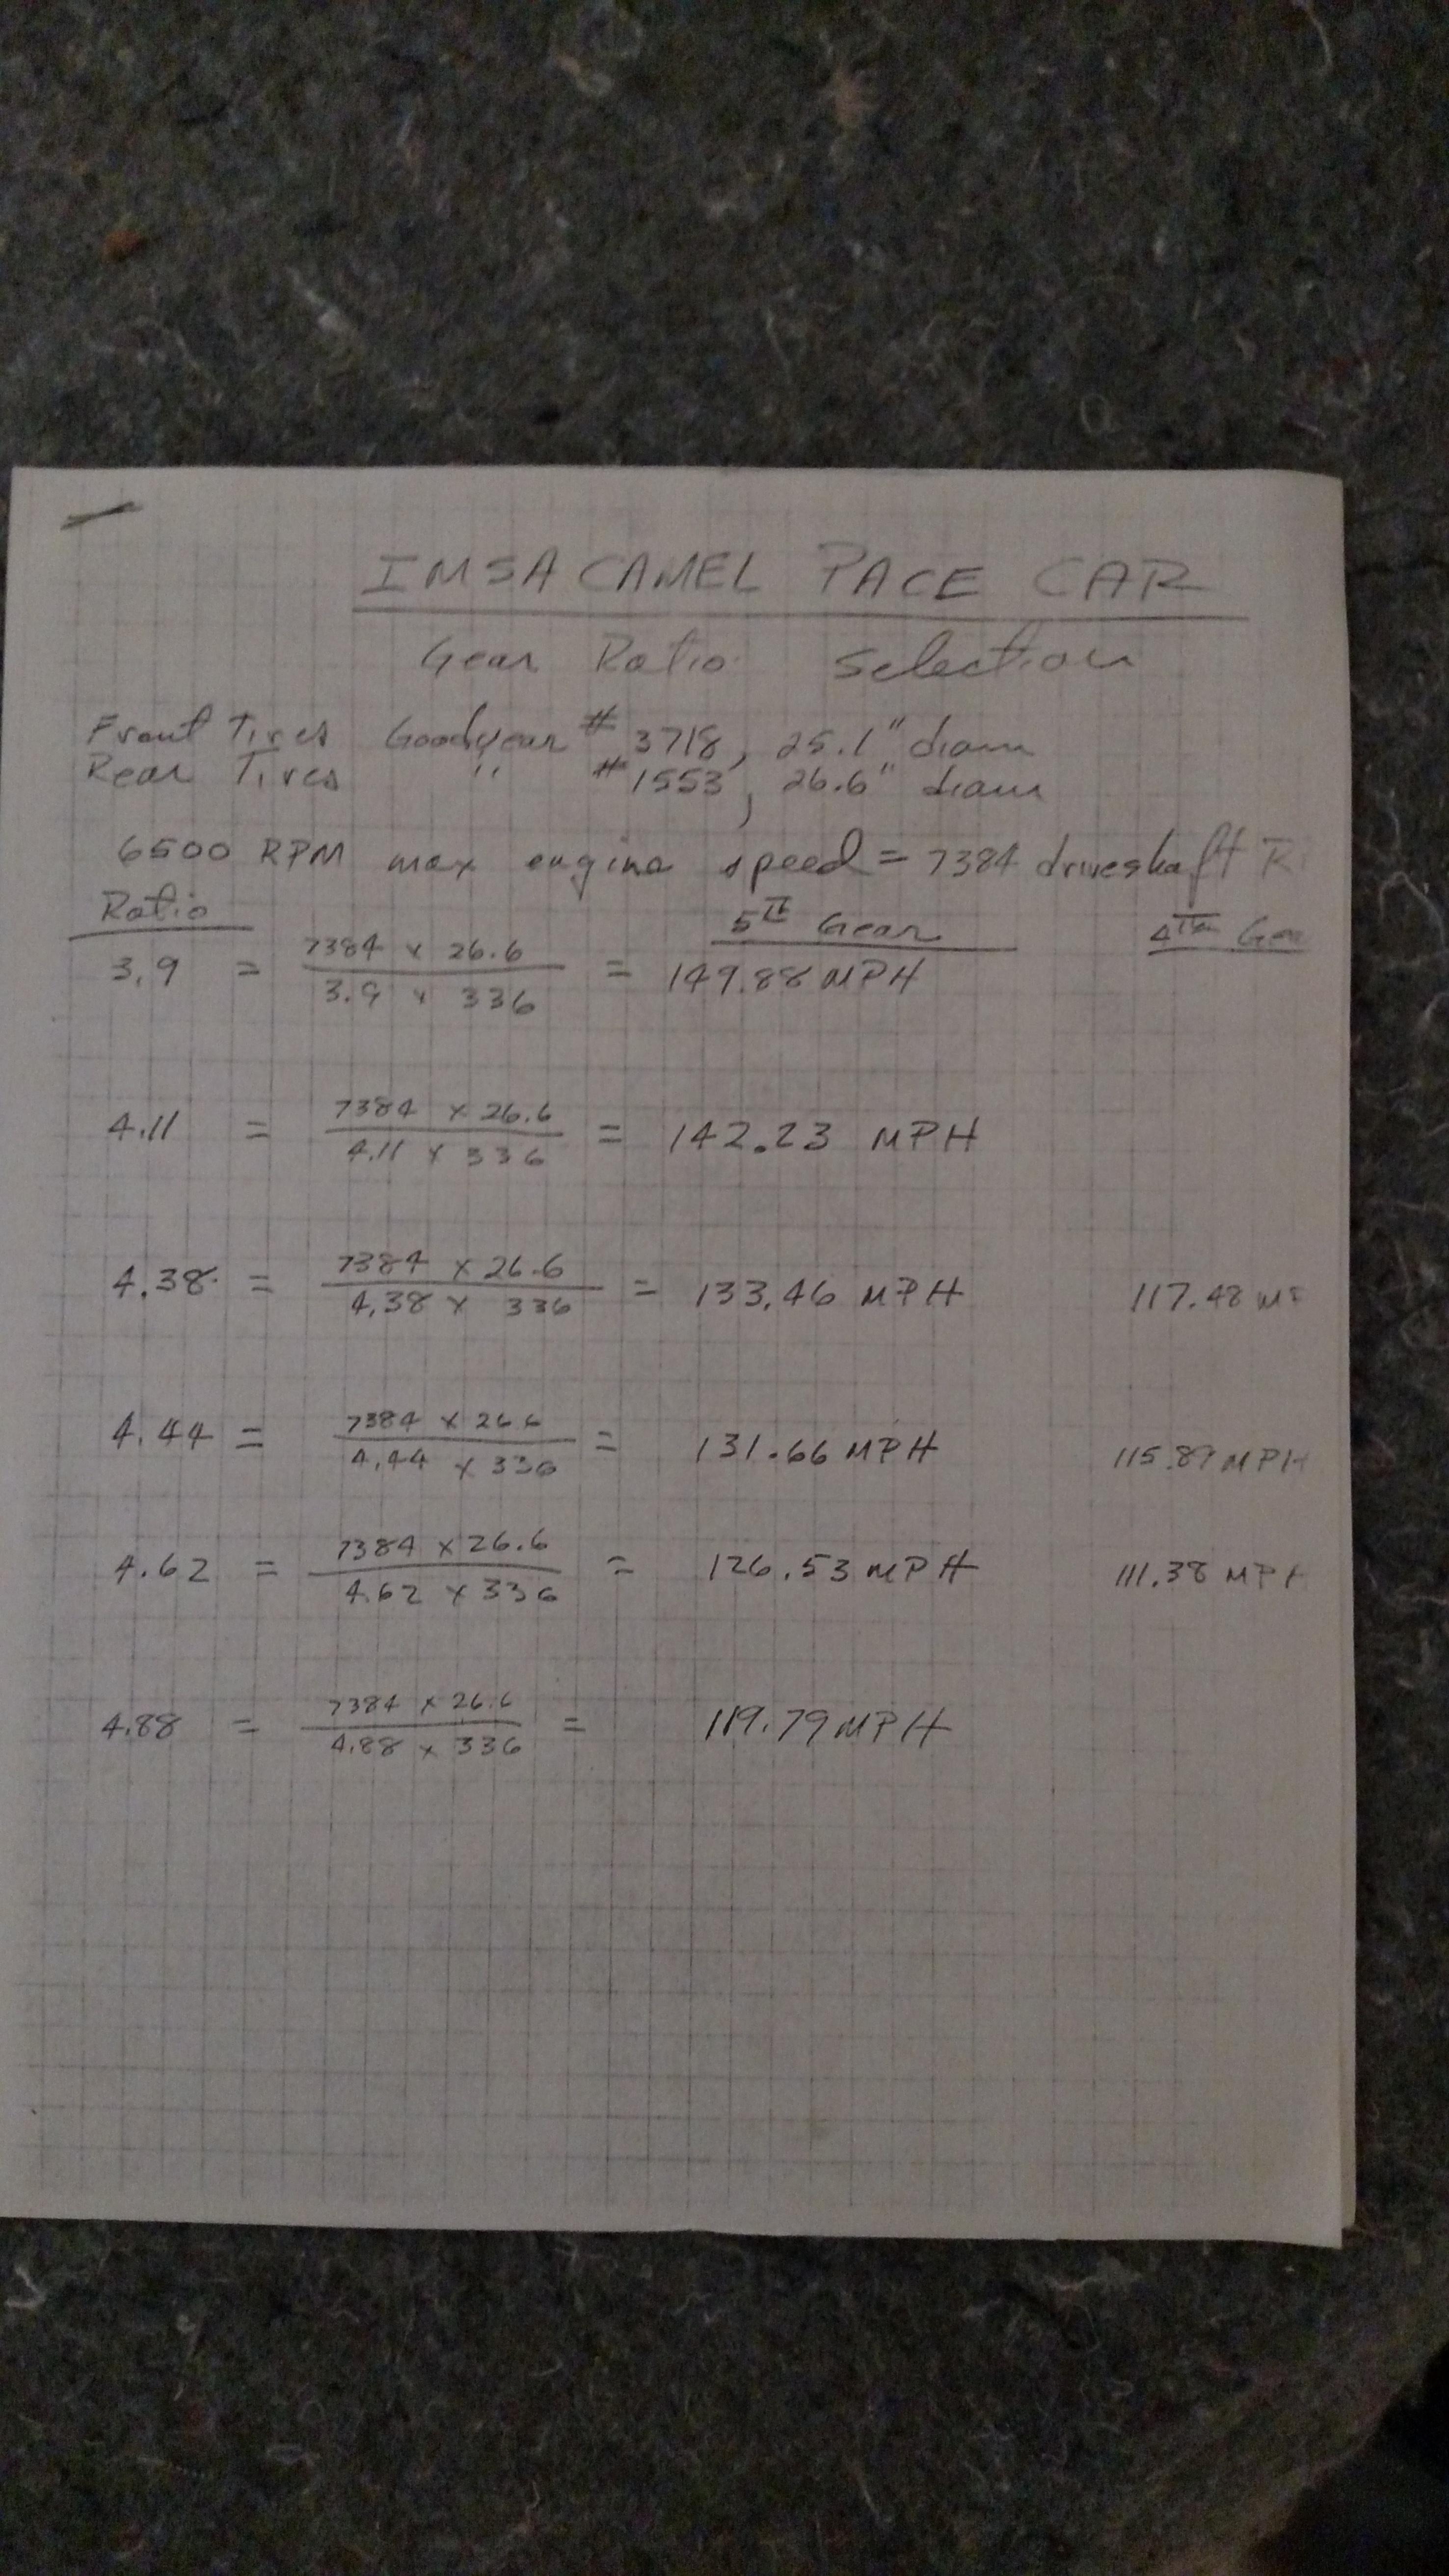 IMSA CAMEL PACE CAR
Gear Ratio Selection
Front Tires Goodyear # 3718, 25.1" diam
Rear Tires " #1553, 26.6" diam
6500 RPM max engine speed = 7384 driveshaft R
Ratio 5TH Gear 4TH Gea
3.9 = 7384 x 26.6 / 3.9 x 336 = 149.88 MPH
4.11 = 7384 x 26.6 / 4.11 x 336 = 142.23 MPH
4.38 = 7384 x 26.6 / 4.38 x 336 = 133.46 MPH 117.48 MP
4.44 = 7384 x 26.6 / 4.44 x 336 = 131.66 MPH 115.89 MPH
4.62 = 7384 x 26.6 / 4.62 x 336 = 126.53 MPH 111.38 MPH
4.88 = 7384 x 26.6 / 4.88 x 336 = 119.79 MPH